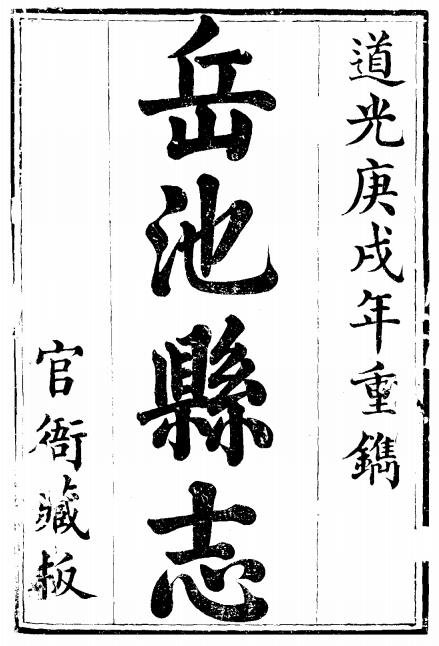 道光庚戌年重鐫
岳池縣志
官衙藏板